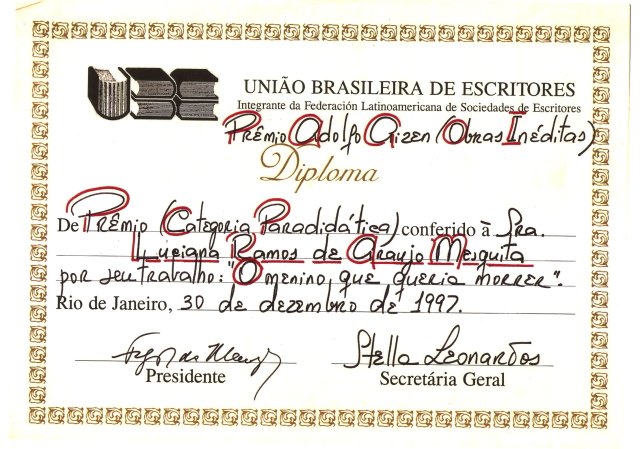 UBE
UNIÃO BRASILEIRA DE ESCRITORES
Integrante da Federación Latinoamericana de Sociedades de Escritores
Prêmio Adolfo Aizen (Obras Inéditas)
Diploma
De Prêmio (Categoria Paradidática) conferido à Sra.
Luciana Ramos de Araujo Mesquita
por seu trabalho: "O menino que queria morrer".
Rio de Janeiro, 30 de dezembro de 1997.
Stella Leonardos
Presidente Secretária Geral